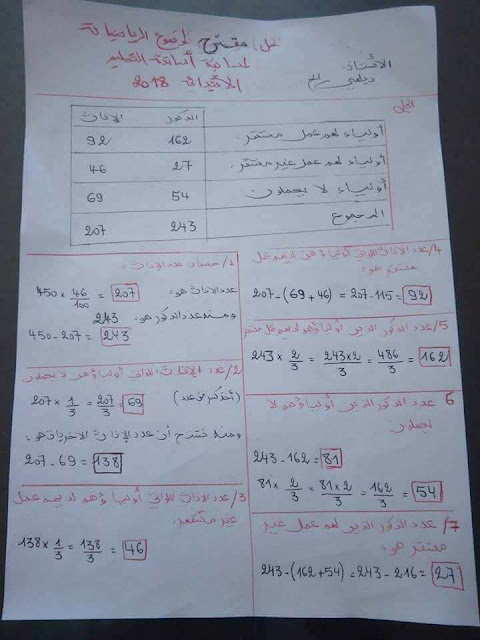 الحل المقترح لموضوع الرياضيات
لمسابقة أساتذة التعليم
الابتدائي 2018
الأستاذ:
الذكور الإناث
أولياء لهم عمل مستقر. 162 92
أولياء لهم عمل غير مستقر. 27 46
أولياء لا يعملون 54 69
المجموع 243 207
1/ حساب عدد الإناث:
عدد الإناث هو:
450 × 46/100 = 207
ومنه عدد الذكور هو: 243
450 - 207 = 243
2/ عدد الإناث اللواتي أولياؤهن لا يعملون
207 × 1/3 = 207/3 = 69
ومنه نستنتج أن عدد الإناث الأخريات هو:
207 - 69 = 138
3/ عدد الإناث اللواتي أولياؤهم لديهم عمل
غير مستقر:
138 × 1/3 = 138/3 = 46
4/ عدد الإناث اللواتي أولياؤهن لديهم عمل
مستقر هو:
207 - (69 + 46) = 207 - 115 = 92
5/ عدد الذكور الذين أولياؤهم لهم عمل مستقر
243 × 2/3 = 243×2/3 = 486/3 = 162
6 عدد الذكور الذين أولياؤهم لا
يعملون
243 - 162 = 81
81 × 2/3 = 81×2/3 = 162/3 = 54
7/ عدد الذكور الذين لهم عمل غير
مستقر هو:
243 - (162 + 54) = 243 - 216 = 27